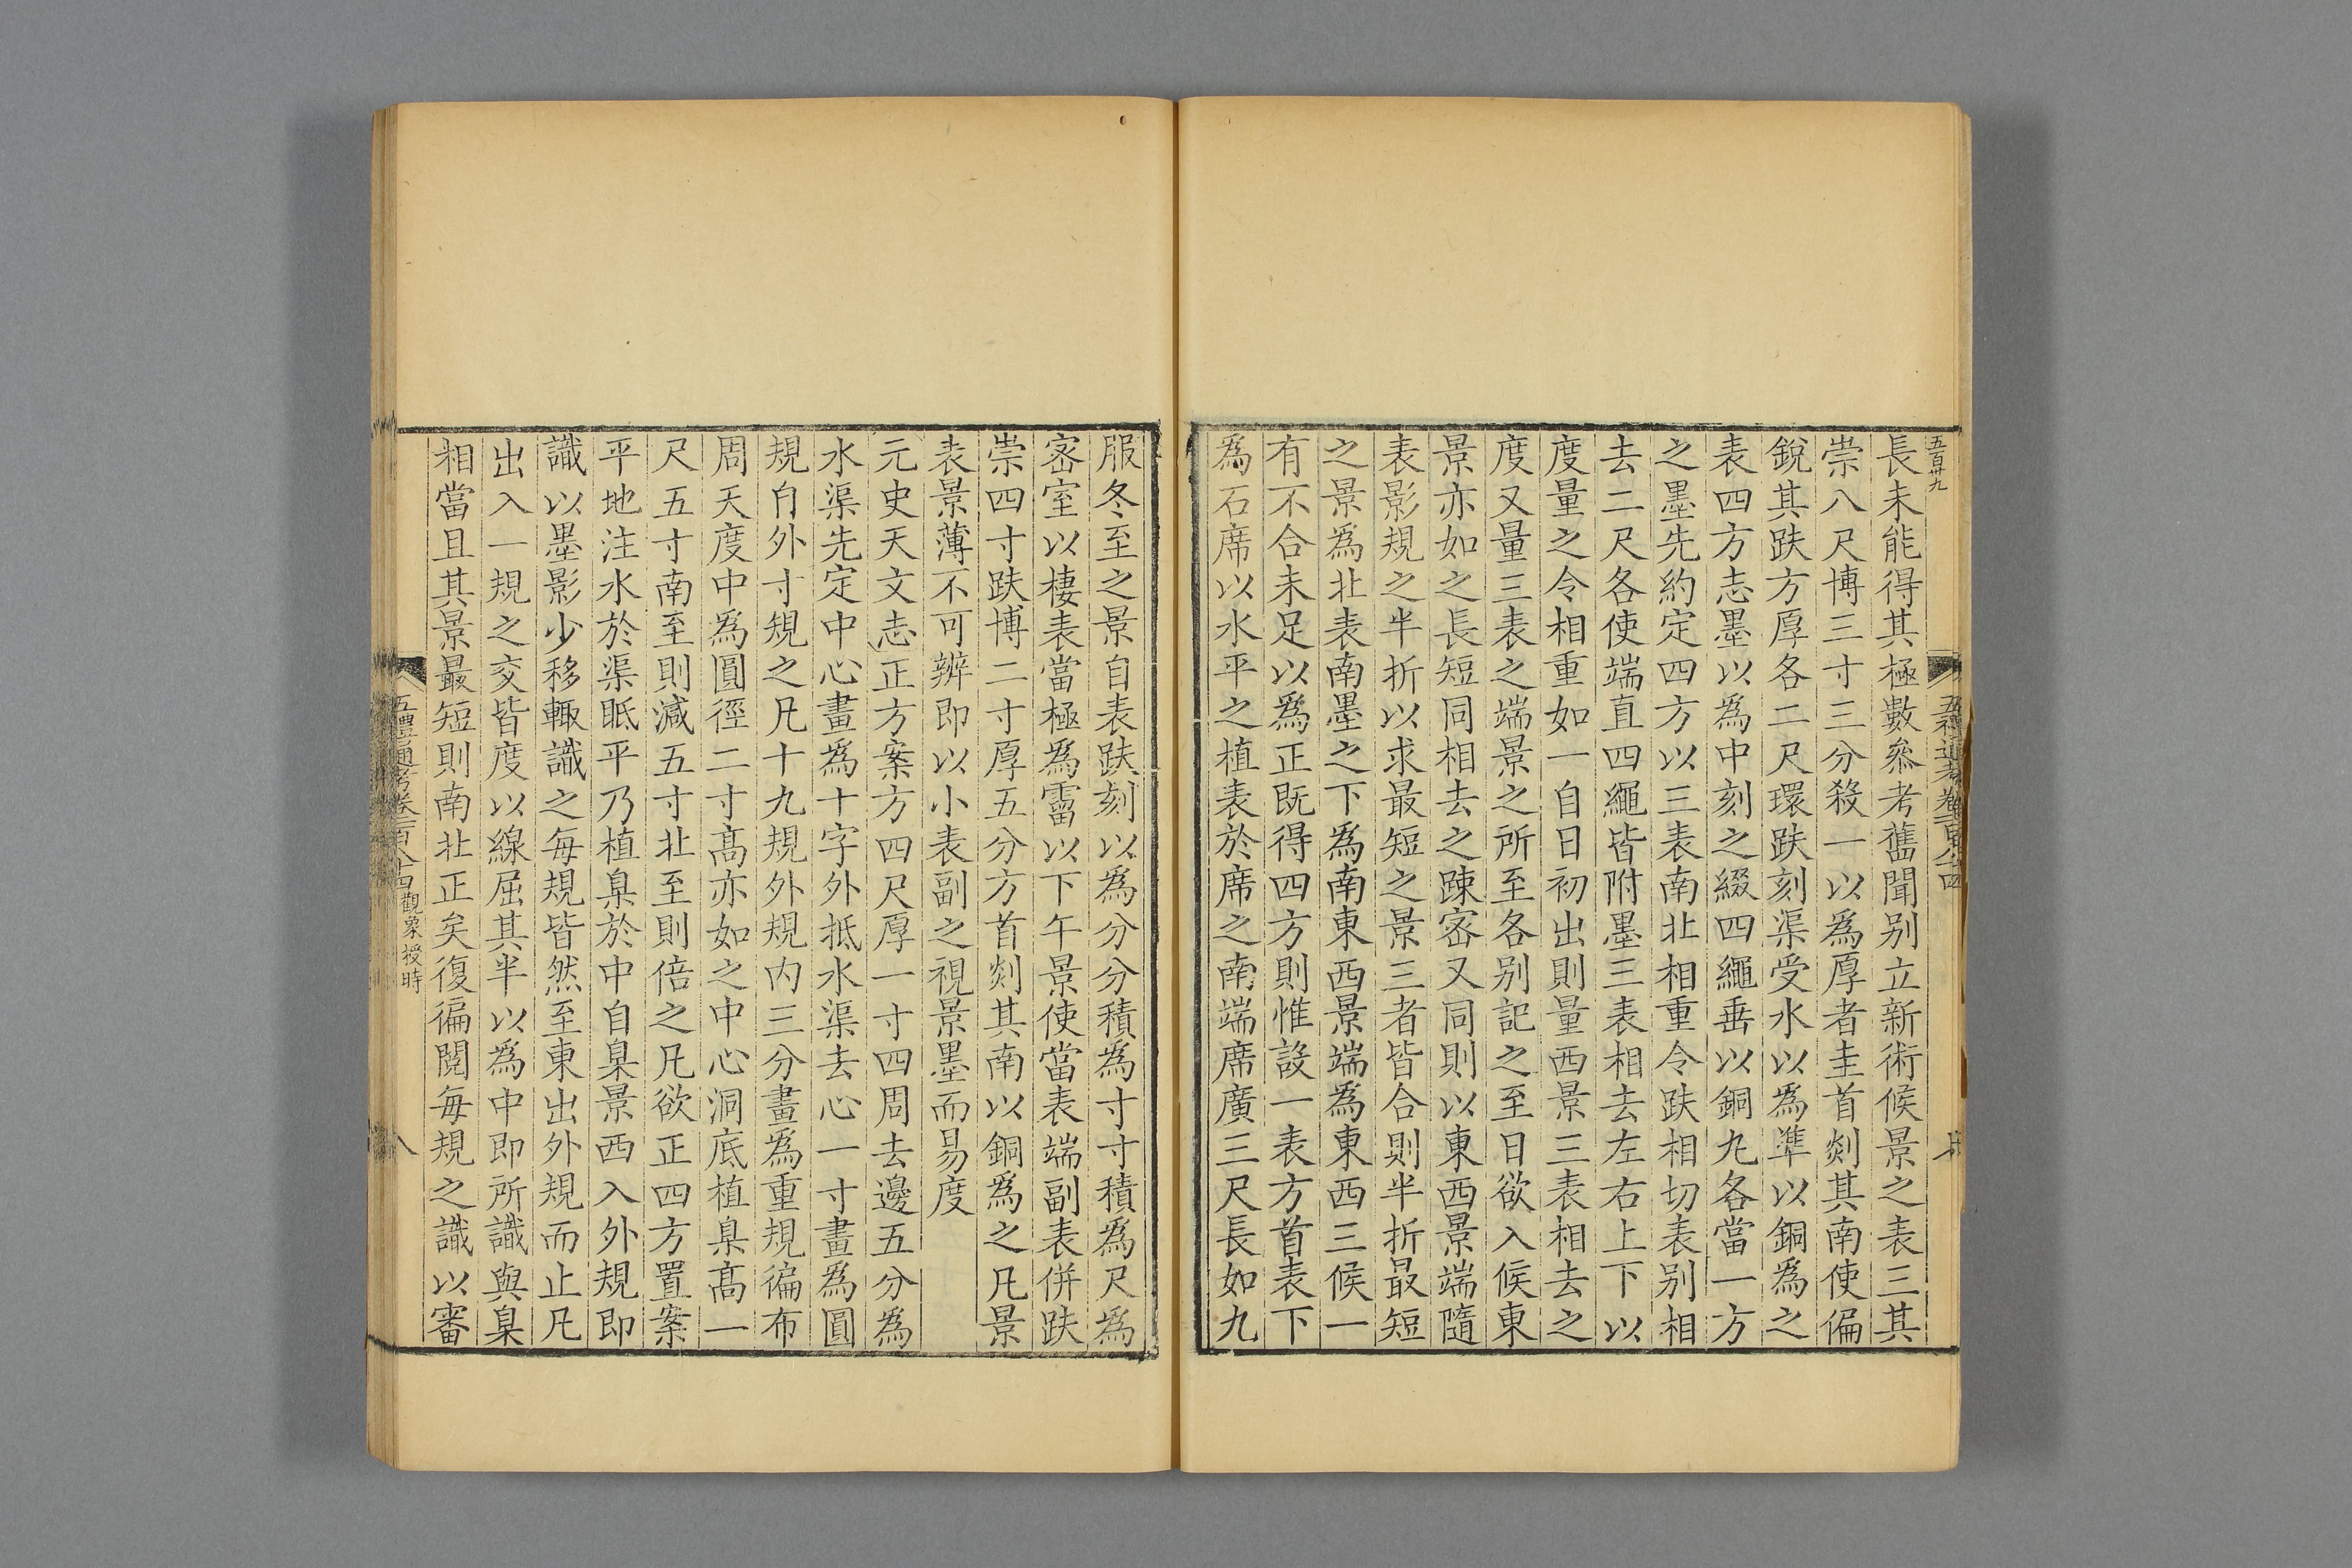 五百卅九
長未能得其極數叅考舊聞别立新術候景之表三其
崇八尺博三寸三分殺一以為厚者圭首剡其南使偏
銳其趺方厚各二尺環趺刻渠受水以為準以銅為之
表四方志墨以為中刻之綴四繩垂以銅九各當一方
之墨先約定四方以三表南北相重令趺相切表别相
去二尺各使端直四繩皆附墨三表相去左右上下以
度量之令相重如一自日初出則量西景三表相去之
度又量三表之端景之所至各别記之至日欲入候東
景亦如之長短同相去之踈宻又同則以東西景端隨
表影規之半折以求最短之景三者皆合則半折最短
之景為北表南墨之下為南東西景端為東西三候一
有不合未足以為正既得四方則惟設一表方首表下
為石席以水平之植表於席之南端席廣三尺長如九
服冬至之景自表趺刻以為分分積為寸寸積為尺為
宻室以棲表當極為霤以下午景使當表端副表併趺
崇四寸趺博二寸厚五分方首剡其南以銅為之凡景
表景薄不可辨即以小表副之視景墨而易度
元史天文志正方案方四尺厚一寸四周去邊五分為
水渠先定中心畫為十字外抵水渠去心一寸畫為圓
規自外寸規之凡十九規外規内三分畫為重規徧布
周天度中為圓徑二寸髙亦如之中心洞底植臬髙一
尺五寸南至則減五寸北至則倍之凡欲正四方置案
平地注水於渠眂平乃植臬於中自臬景西入外規即
識以墨影少移輙識之每規皆然至東出外規而止凡
出入一規之交皆度以線屈其半以為中即所識與臬
相當且其景最短則南北正矣復徧閱每規之識以審
五禮通考卷一百八十四 觀象授時 八